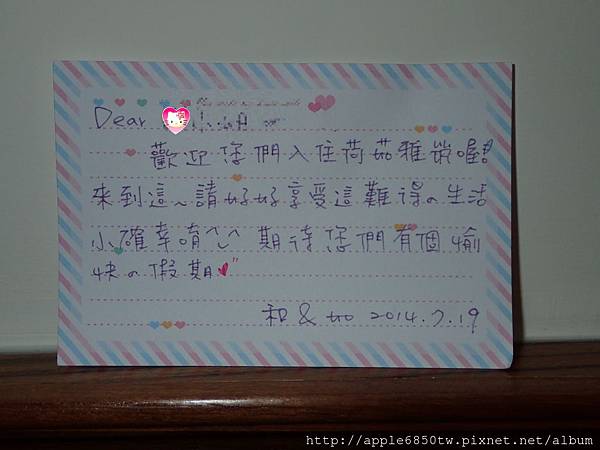 Dear 小
歡迎您們入住荷茹雅筑喔!
來到這~請好好享受這難得の生活
小確幸唷^◡^ 期待您們有個愉
快の假期♥"
和 & 如 2014.7.19
http://apple6850tw.pixnet.net/album